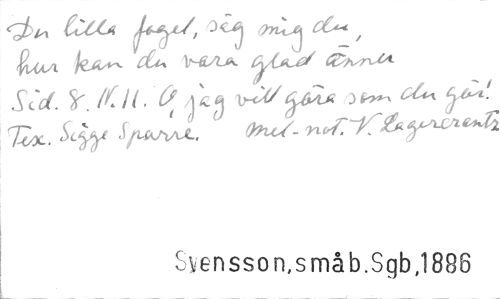 Du lilla fogel, säg mig du,
hur kan du vara glad ännu
Sid. 8. N. 11. O, jag vill göra som du gör!
Tex. Sigge Sparre. mel-not. V. Lagercrantz
Svensson,småb.Sgb,1886